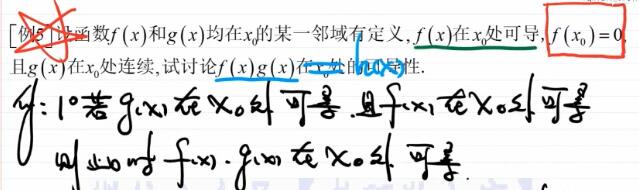 [例5]设函数f(x)和g(x)均在x₀的某一邻域有定义,f(x)在x₀处可导,f(x₀)=0,
且g(x)在x₀处连续,试讨论f(x)g(x)在x₀处的可导性.
= h(x)
解: 1° 若 g(x) 在 x₀ 处 可导. 且 f(x) 在 x₀ 处 可导
则 此时 f(x)·g(x) 在 x₀ 处 可导.